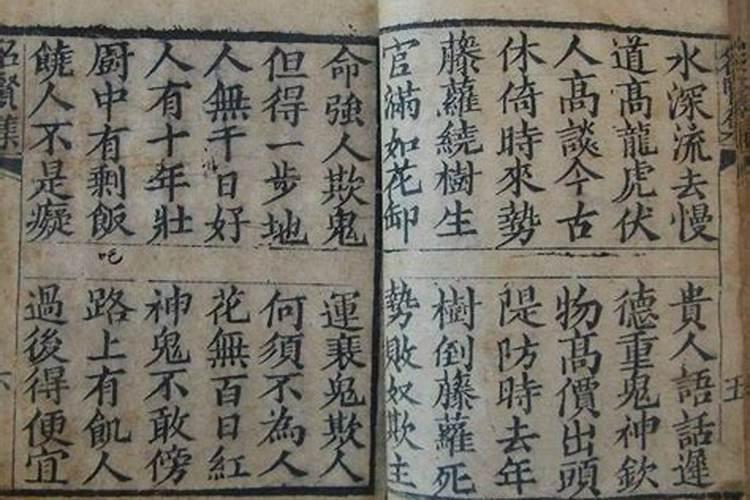 水深流去慢 貴人語話遲
道高龍虎伏 德重鬼神欽
人高談今古 物高價出頭
休倚時來勢 隄防時去年
藤蘿繞樹生 樹倒藤蘿死
官滿如花卸 勢敗奴欺主
五
命強人欺鬼 運衰鬼欺人
但得一步地 何須不為人
人無千日好 花無百日紅
人有十年壯 神鬼不敢傍
廚中有剩飯 路上有飢人
吃
饒人不是癡 過後得便宜
名賢集